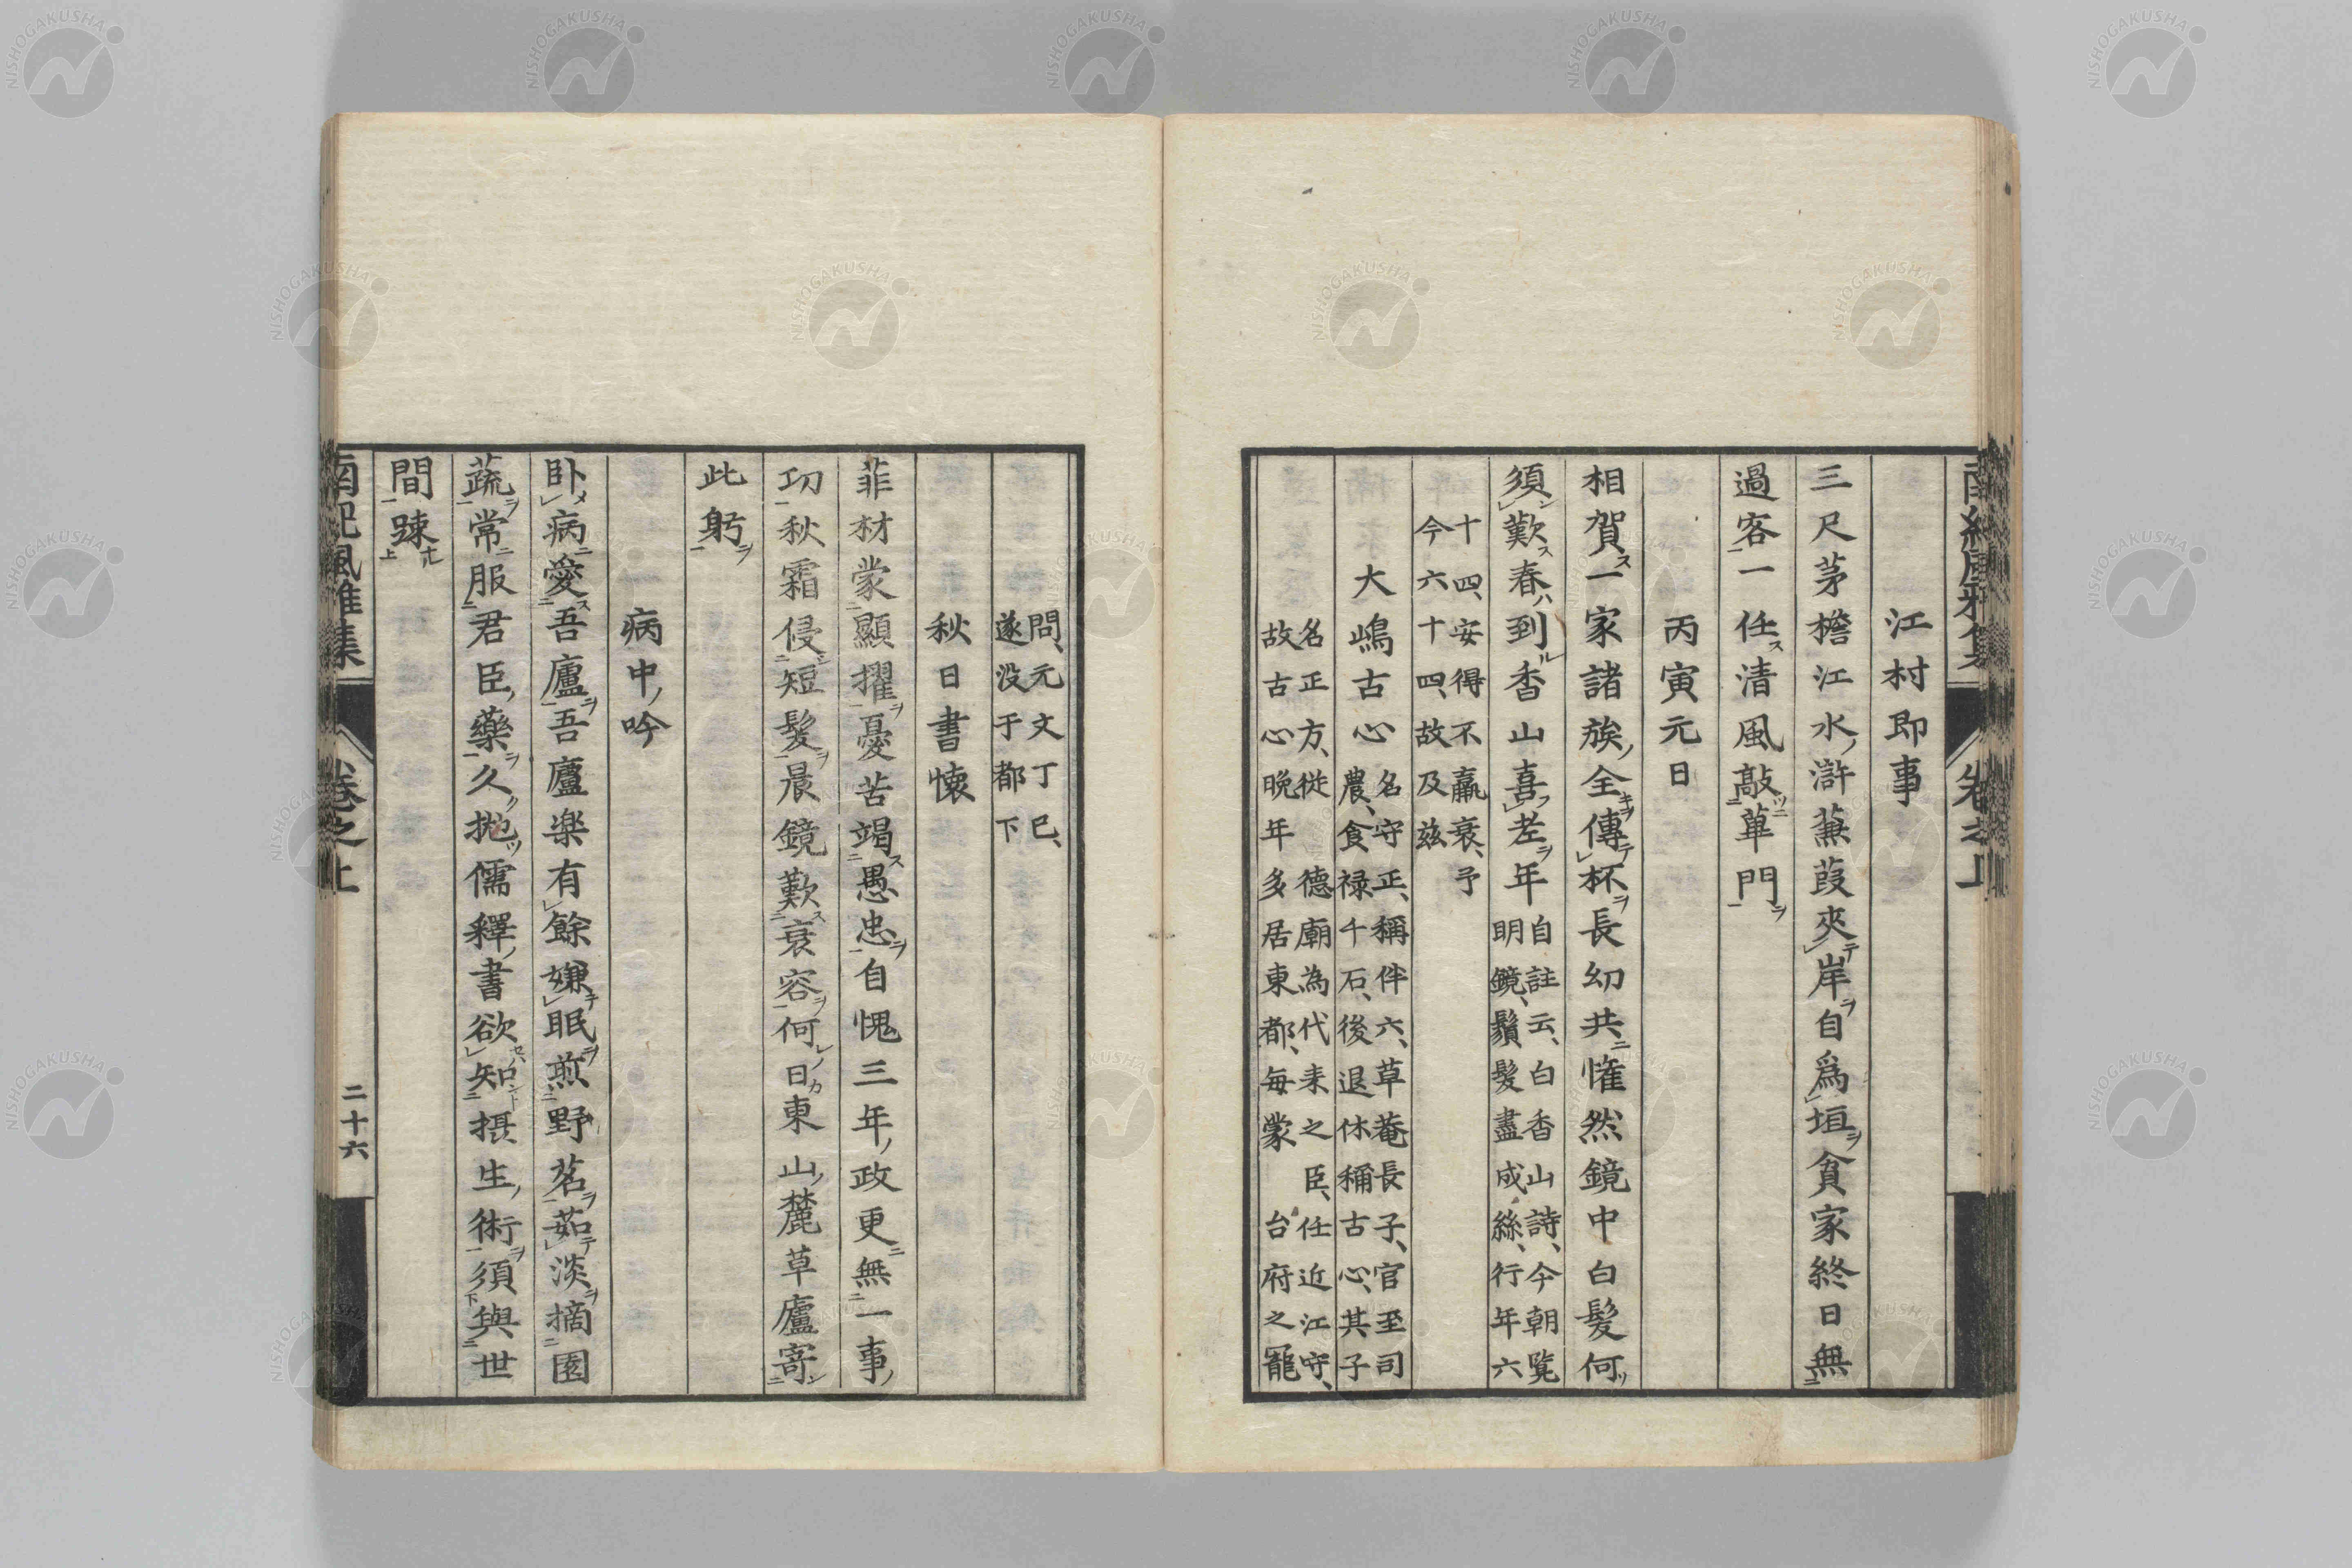 江村即事
三尺茅檐江水滸蒹葭夾岸自爲垣貧家終日無
過客一任清風敲蓽門
丙寅元日
相賀一家諸族全傳杯長幼共懽然鏡中白髮何
須歎春到香山喜老年自註云、白香山詩、今朝覧
明鏡、鬚髮盡成絲、行年六
十四、安得不羸衰、予
今六十四、故及茲
大嶋古心名守正、稱伴六、草菴長子、官至司
農、食禄千石、後退休稱古心、其子
名正方、従 德廟為代来之 臣、任近江守、
故古心晩年多居東都、每蒙 台府之寵
問、元文丁巳、
遂没于都下
秋日書懐
菲材蒙顯擢憂苦竭愚忠自愧三年政更無一事
功秋霜侵短髮晨鏡歎衰容何日東山麓草廬寄
此躬
病中吟
臥病愛吾廬吾廬楽有餘嫌眠煎野茗茹淡摘園
蔬常服君臣藥久抛儒釋書欲知摂生術須與世
間踈
南紀風雅集 巻之上 二十六